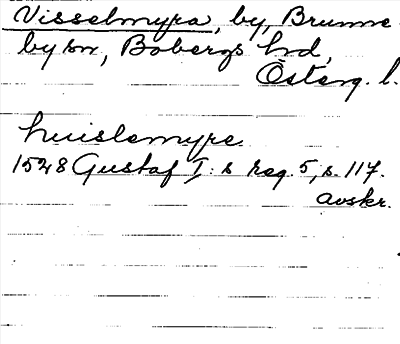 Visselmyra, by, Brunne-
by sn, Bobergs hd,
Österg. l.
huislemyre
1528 Gustaf I:s reg. 5, s. 117.
avskr.